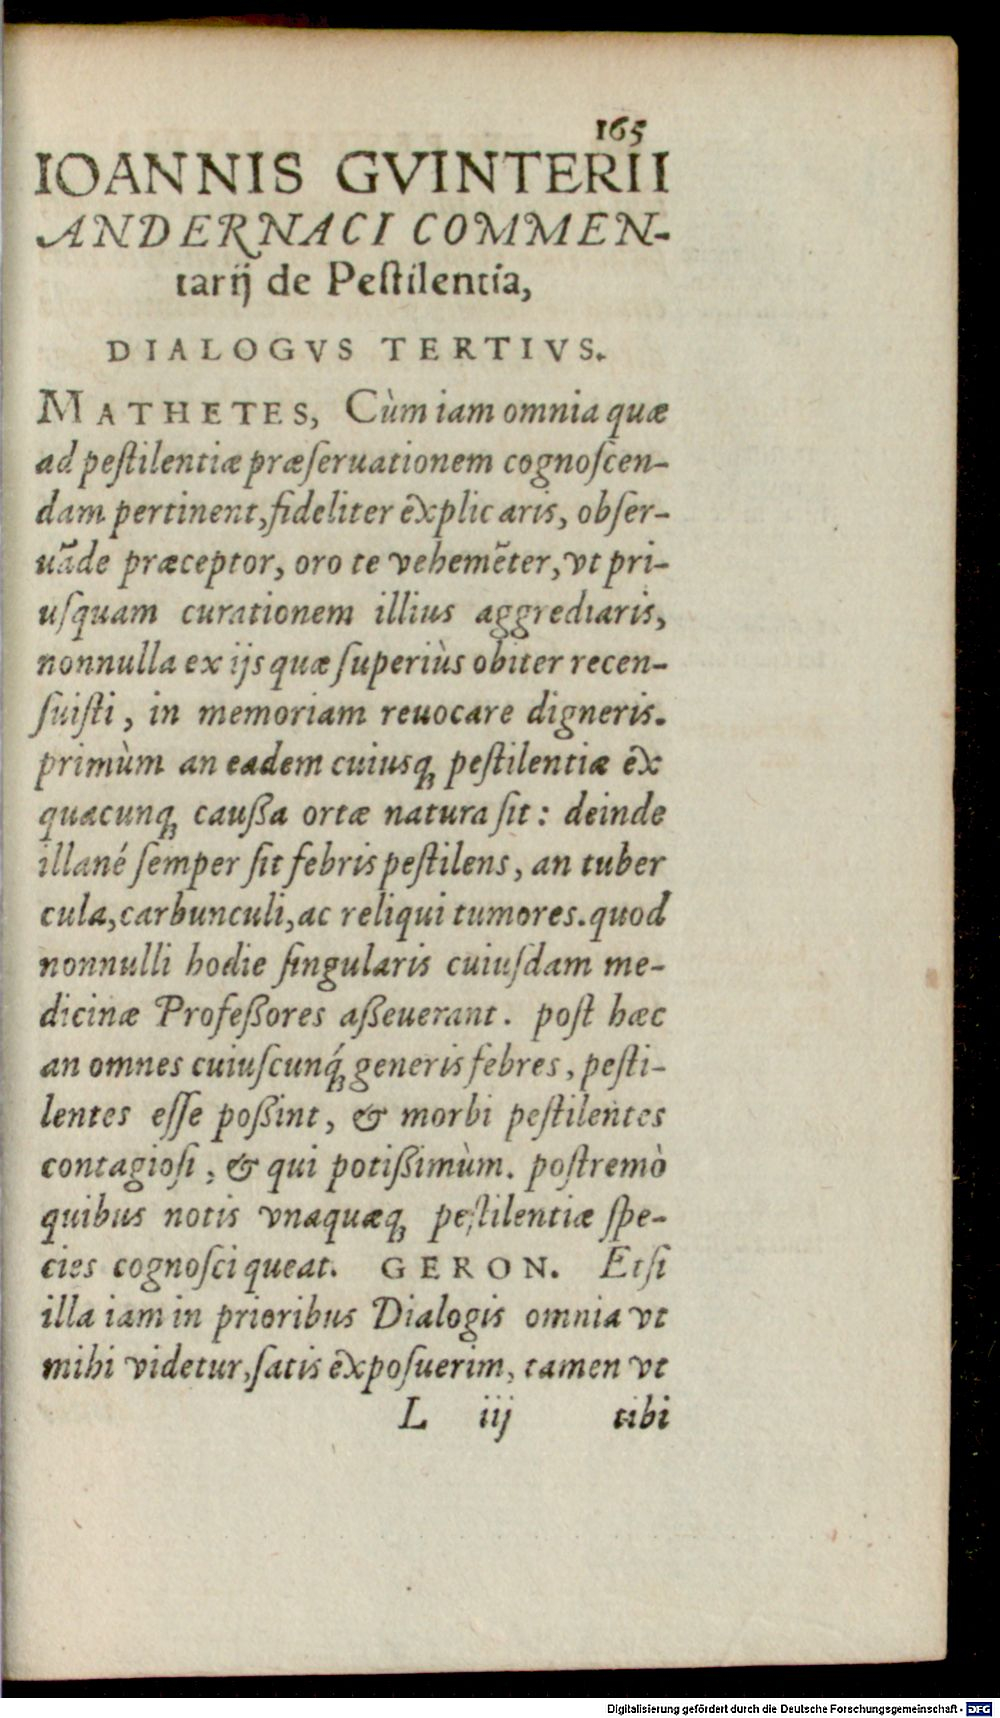 165
IOANNIS GVINTERII
ANDERNACI COMMEN-
tarij de Peſtilentia,
DIALOGVS TERTIVS.
MATHETES, Cùm iam omnia quæ
ad peſtilentiæ præſeruationem cognoſcen-
dam pertinent, fideliter explicaris, obſer-
uãde præceptor, oro te vehemẽter, vt pri-
uſquam curationem illius aggrediaris,
nonnulla ex ijs quæ ſuperiùs obiter recen-
ſuiſti, in memoriam reuocare digneris.
primùm an eadem cuiusq; peſtilentiæ ex
quacunq; cauſſa ortæ natura ſit: deinde
illané ſemper ſit febris peſtilens, an tuber
cula, carbunculi, ac reliqui tumores. quod
nonnulli hodie ſingularis cuiuſdam me-
dicinæ Profeßores aßeuerant. poſt hæc
an omnes cuiuſcunq́; generis febres, peſti-
lentes eſſe poßint, & morbi peſtilentes
contagioſi, & qui potißimùm. poſtremò
quibus notis vnaquæq; peſtilentiæ ſpe-
cies cognoſci queat. GERON. Etſi
illa iam in prioribus Dialogis omnia vt
mihi videtur, ſatis expoſuerim, tamen vt
L iij tibi
Digitalisierung gefördert durch die Deutsche Forschungsgemeinschaft - DFG